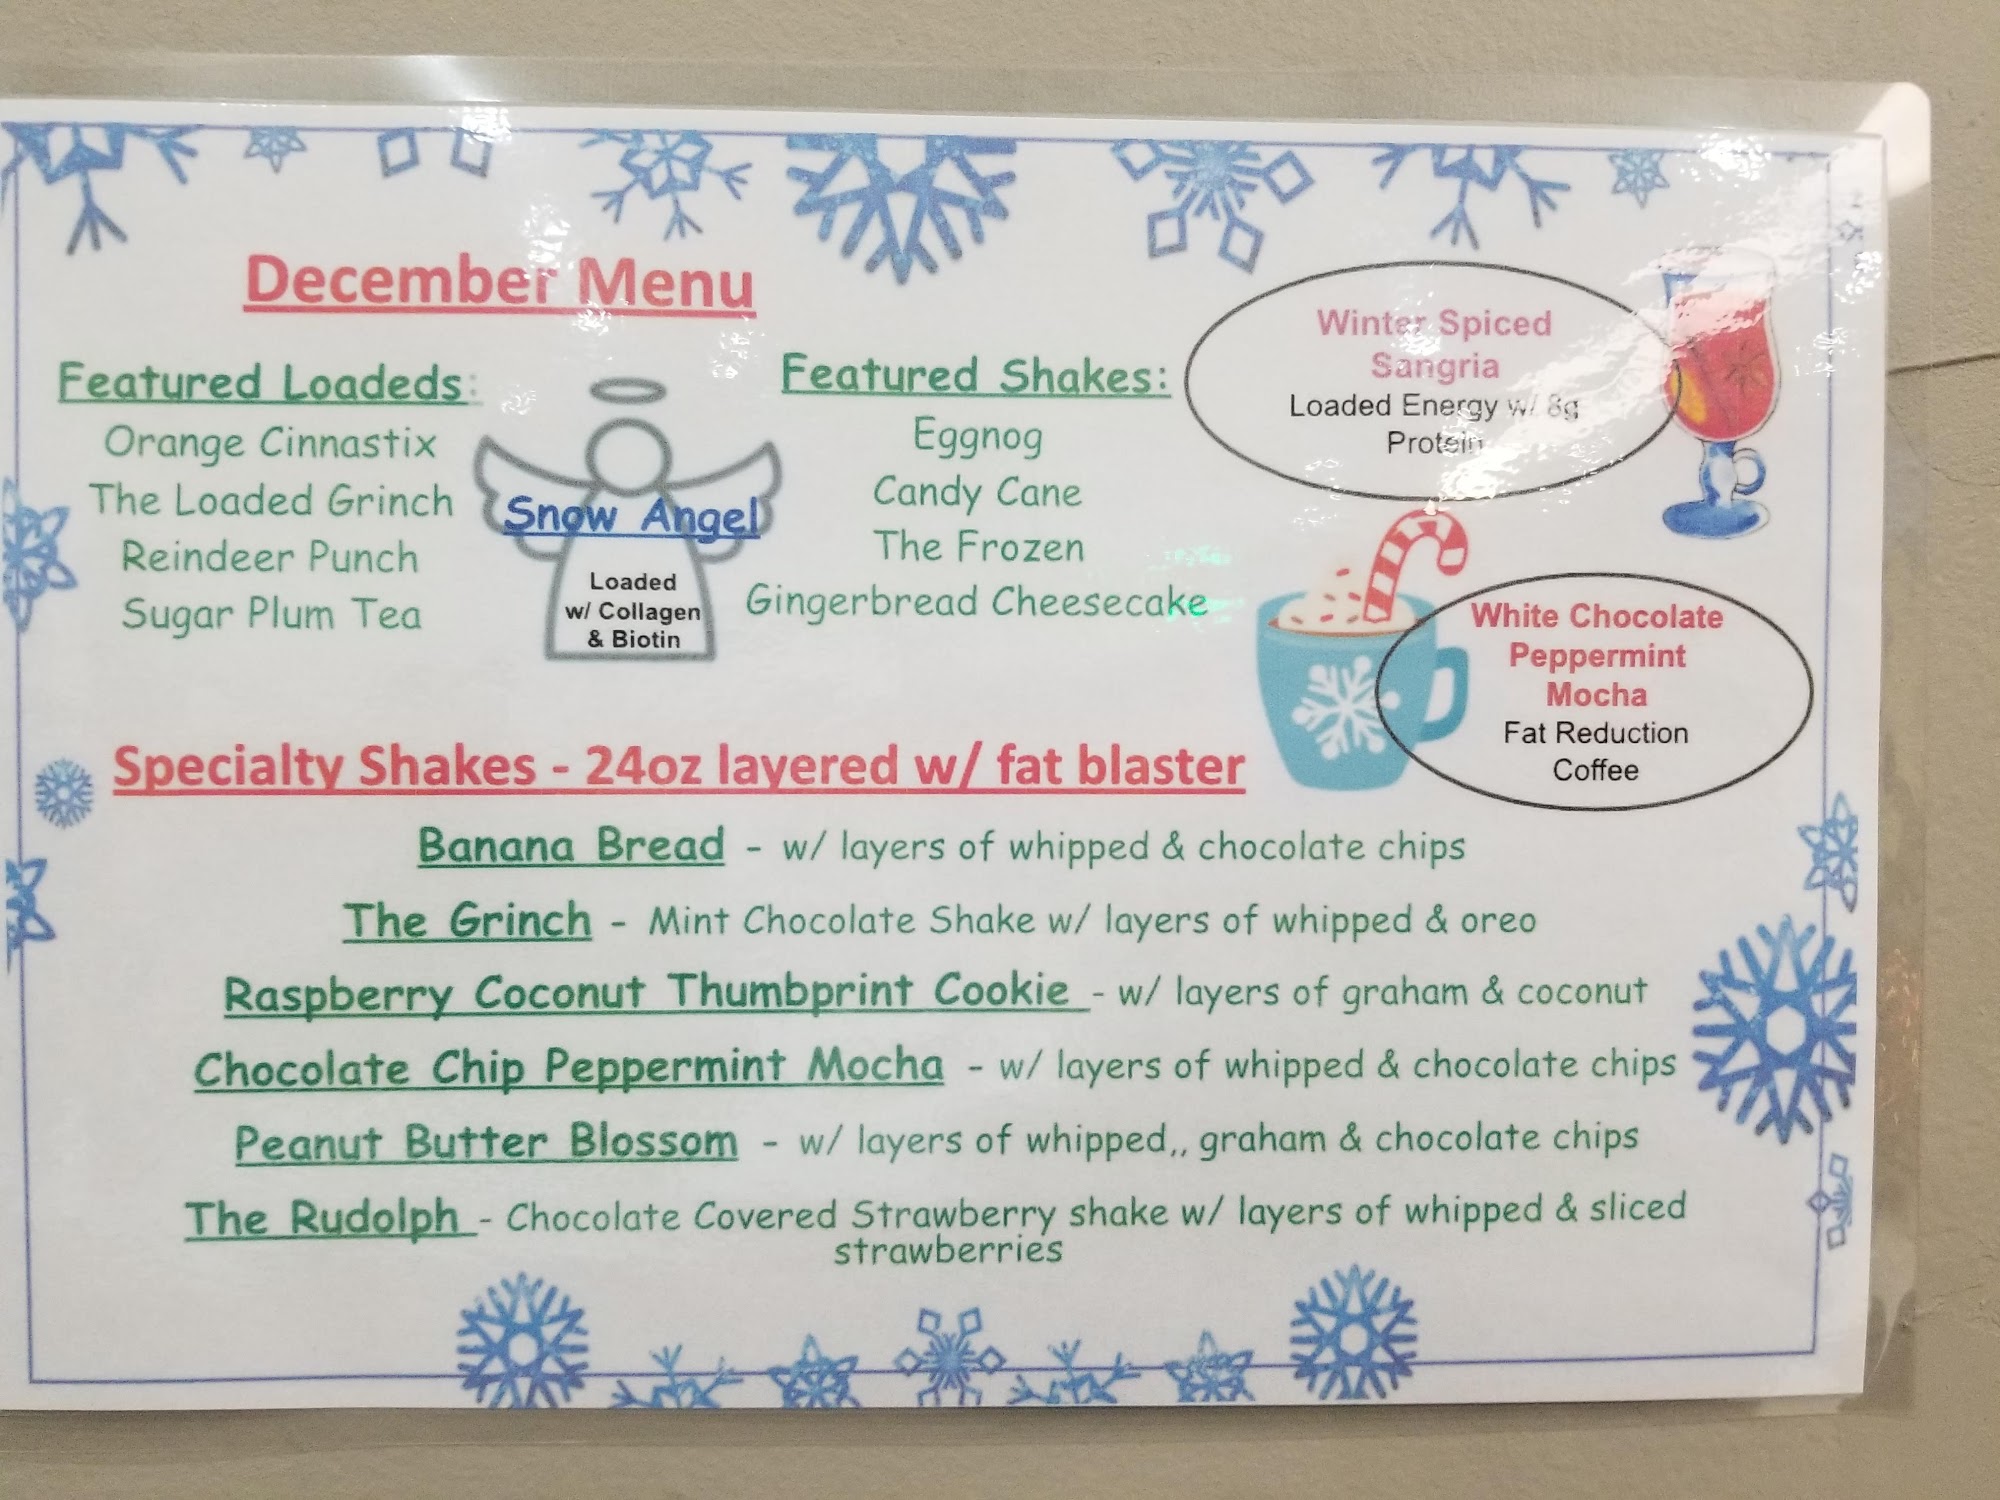 December Menu
Featured Loadeds:
Orange Cinnastix
The Loaded Grinch
Reindeer Punch
Sugar Plum Tea
Snow Angel
Loaded
w/ Collagen
& Biotin
Featured Shakes:
Eggnog
Candy Cane
The Frozen
Gingerbread Cheesecake
Winter Spiced
Sangria
Loaded Energy w/ 8g
Protein
White Chocolate
Peppermint
Mocha
Fat Reduction
Coffee
Specialty Shakes - 24oz layered w/ fat blaster
Banana Bread - w/ layers of whipped & chocolate chips
The Grinch - Mint Chocolate Shake w/ layers of whipped & oreo
Raspberry Coconut Thumbprint Cookie - w/ layers of graham & coconut
Chocolate Chip Peppermint Mocha - w/ layers of whipped & chocolate chips
Peanut Butter Blossom - w/ layers of whipped,, graham & chocolate chips
The Rudolph - Chocolate Covered Strawberry shake w/ layers of whipped & sliced
strawberries